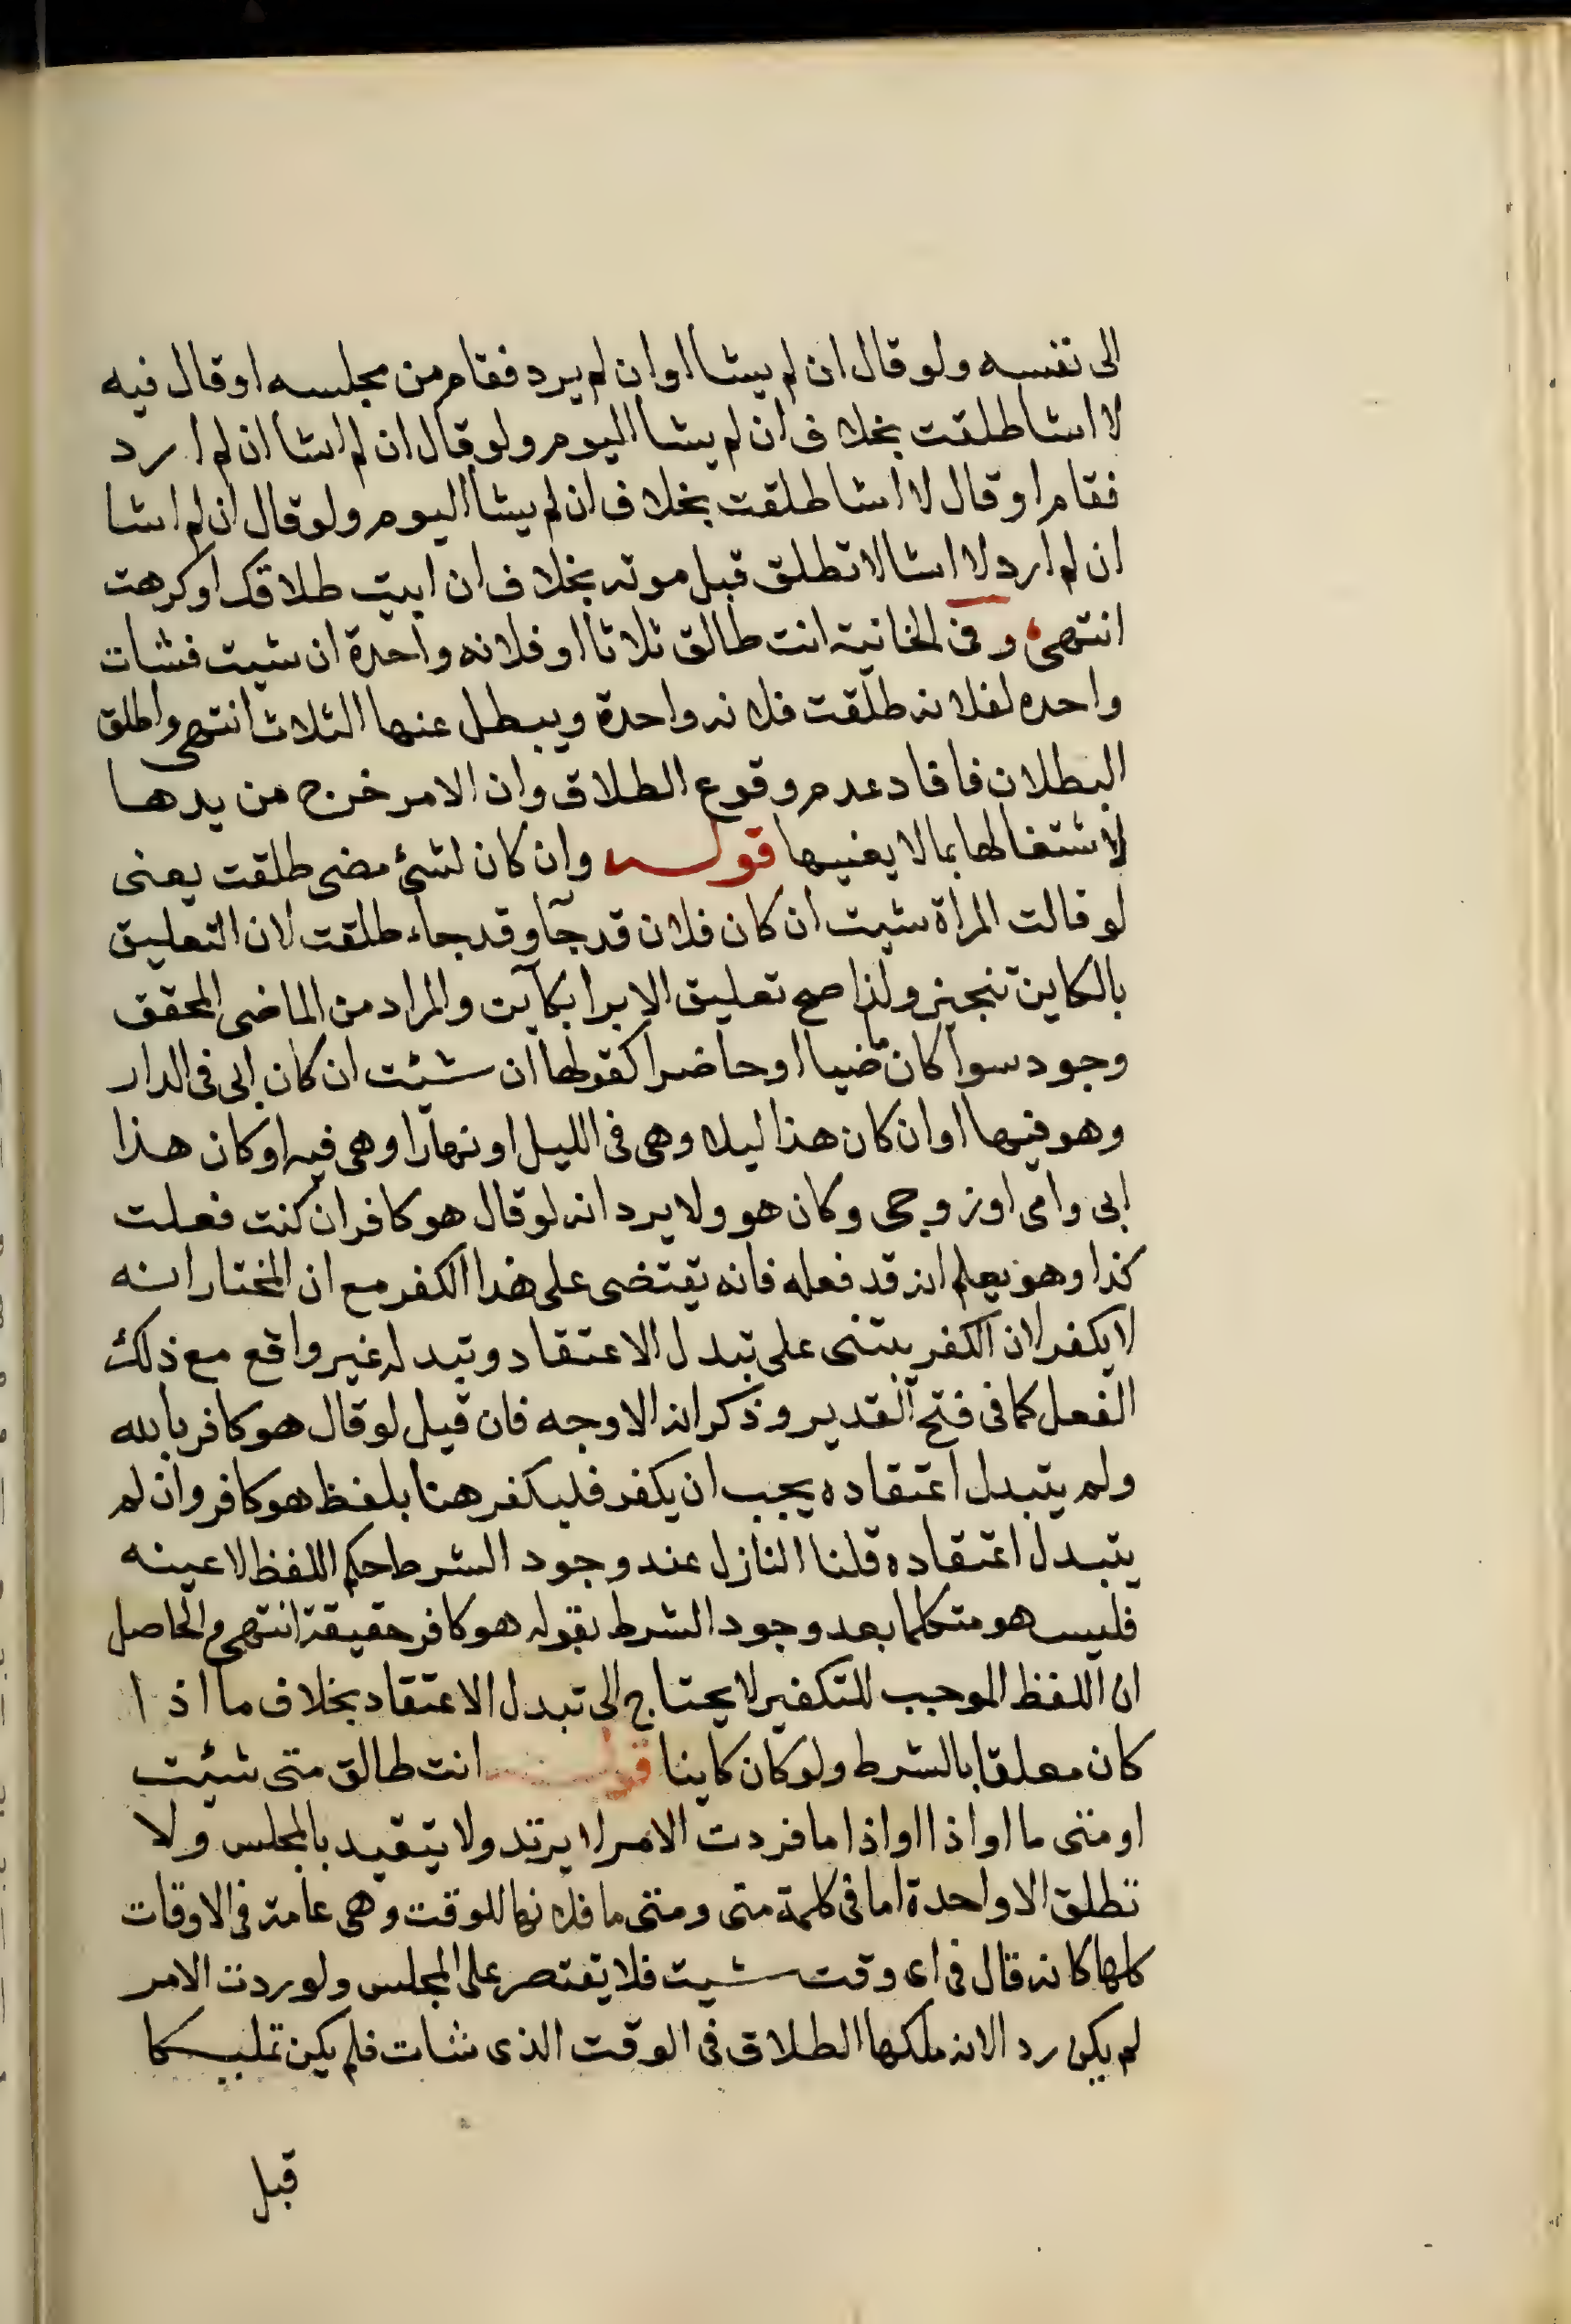 الى نفسه ولو قال ان لم يشا او ان لم يرد فقام من مجلسه او قال فيه
لا اشا طلقت بخلاف ان لم يشا اليوم ولو قال ان لم اشا ان لم ارد
فقام او قال لا اشا طلقت بخلاف ان لم يشا اليوم ولو قال ان لم اشا
ان لم ارد لا اشا لا تطلق قبل موته بخلاف ان ابيت طلاقك او كرهت
انتهى وفى الخانية انت طالق ثلاثا او فلانه واحدة ان شيت فشات
واحده لفلانه طلقت فلانه واحدة ويبطل عنها الثلاث انتهى واطلق
البطلان فافاد عدم وقوع الطلاق وان الامر خرج من يدها
لاشتغالها بما لا يعنيها قوله وان كان لشئ مضى طلقت يعنى
لو قالت المراة شيت ان كان فلان قد جآ وقد جاء طلقت لان التعليق
بالكاين تنجيز ولذا صح تعليق الابرا بكآين والمراد من الماضى المحقق
وجود سوآ كان ماضيا او حاضرا كقولها ان شئت ان كان ابى فى الدار
وهو فيها او ان كان هذا ليلا وهى فى الليل او نهارا وهى فيه او كان هذا
ابى وامى او زوجى وكان هو ولا يرد انه لو قال هو كافر ان كنت فعلت
كذا وهو يعلم انه قد فعله فانه يقتضى على هذا الكفر مع ان المختار انه
لا يكفر لان الكفر يبتنى على تبدل الاعتقاد وتبدله غير واقع مع ذلك
الفعل كما فى فتح القدير وذكر انه الاوجه فان قيل لو قال هو كافر بالله
ولم يتبدل اعتقاده يجب ان يكفر فليكفر هنا بلفظ هو كافر وان لم
يتبدل اعتقاده قلنا النازل عند وجود الشرط حكم اللفظ لا عينه
فليس هو متكلما بعد وجود الشرط بقوله هو كافر حقيقة انتهى والحاصل
ان اللفظ الموجب للتكفير لا يحتاج الى تبدل الاعتقاد بخلاف ما اذا
كان معلقا بالشرط ولو كان كاينا قوله انت طالق متى شئيت
او متى ما او اذا او اذا ما فردت الامر لا يرتد ولا يتقيد بالمجلس ولا
تطلق الا واحدة اما فى كلمة متى ومتى ما فلانها للوقت وهى عامة فى الاوقات
كلها كانه قال فى اى وقت شيت فلا يقتصر على المجلس ولو ردت الامر
لم يكن رد الانه ملكها الطلاق فى الوقت الذى شات فلم يكن تمليكا
قبل